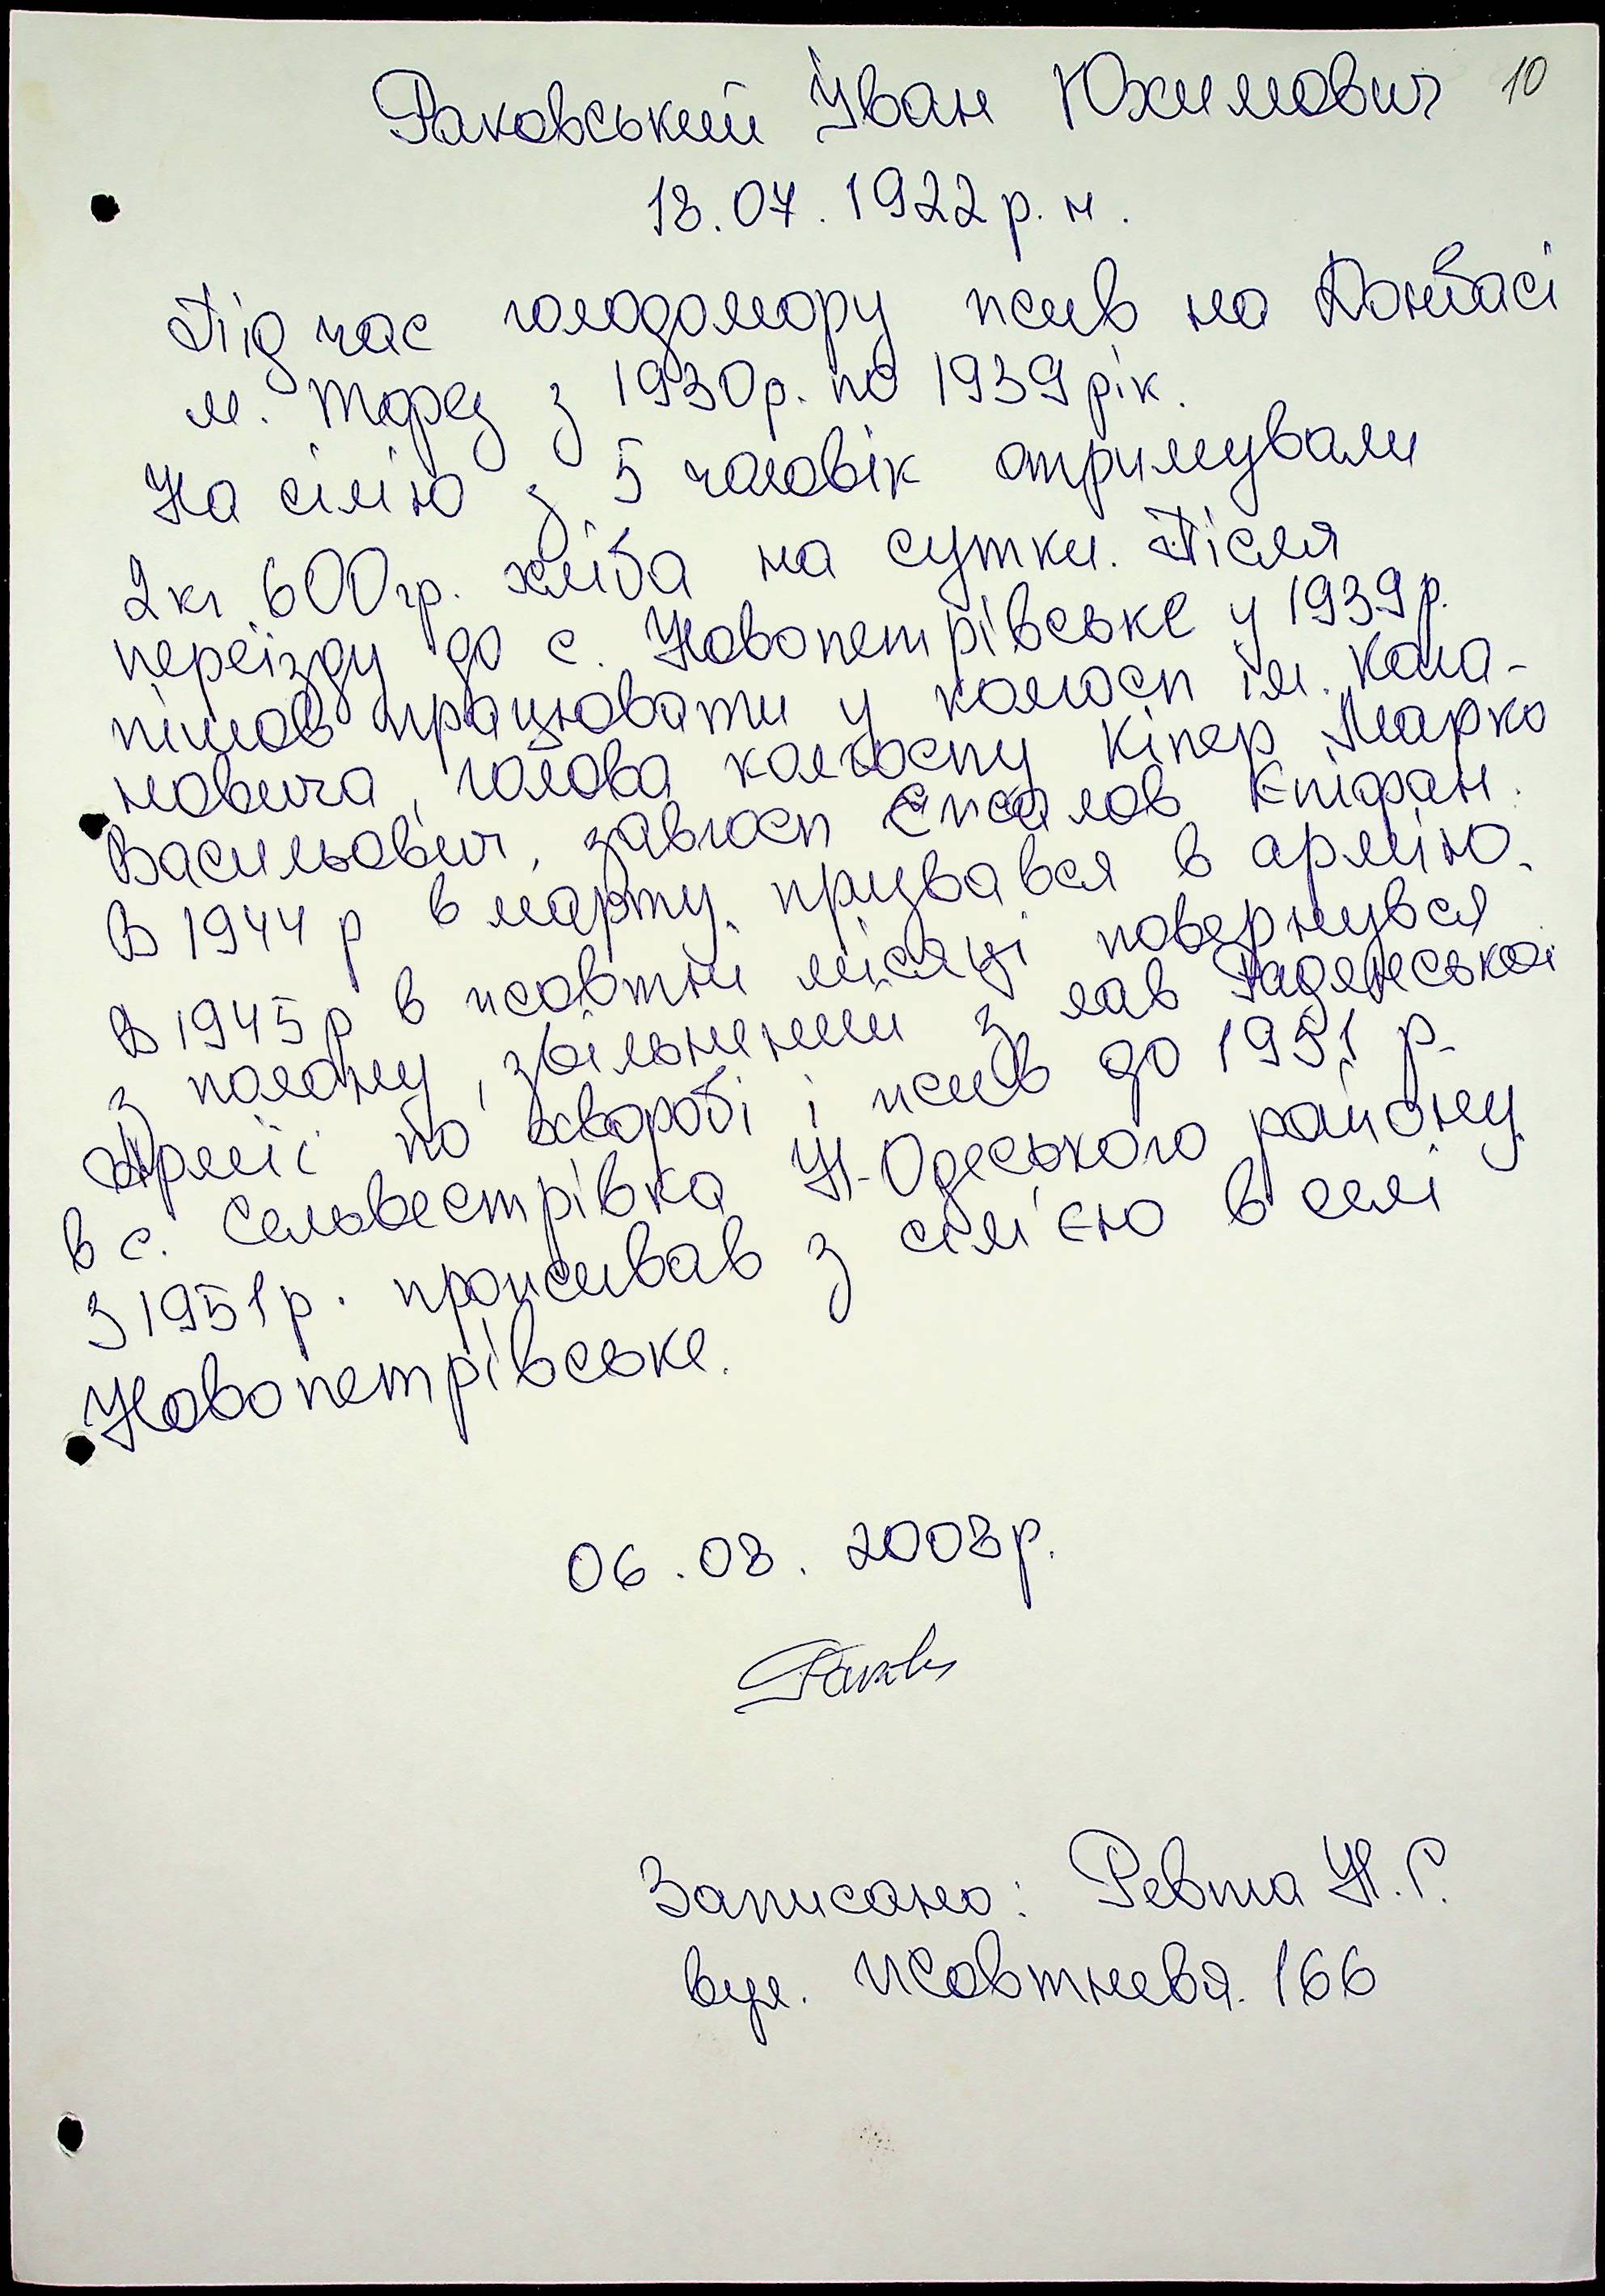 Раковський Іван Юхимович 10
18.07.1922 р. н.
Під час голодомору жив на Донбасі
м. Торез з 1930 р. по 1939 рік.
На сімю з 5 чоловік отримували
2 кг 600 гр. хліба на сутки. Після
переїзду до с. Новопетрівське у 1939 р.
пішов працювати у колгосп ім. Кага-
новича, голова колгоспу Кіпер Марко
Васильович, завгосп Епіфан.
В 1944 р в марту призвався в армію.
В 1945 р в жовтні місяці повернувся
з полону, звільнений з лав Радянської
Армії по хворобі і жив до 1951 р.
в с. Сельвестрівка Н-Одеського району.
З 1951 р. проживав з сім'єю в селі
Новопетрівське.
06.08.2008 р.
Записано: Ревта Н.Г.
вул. Жовтнева 166